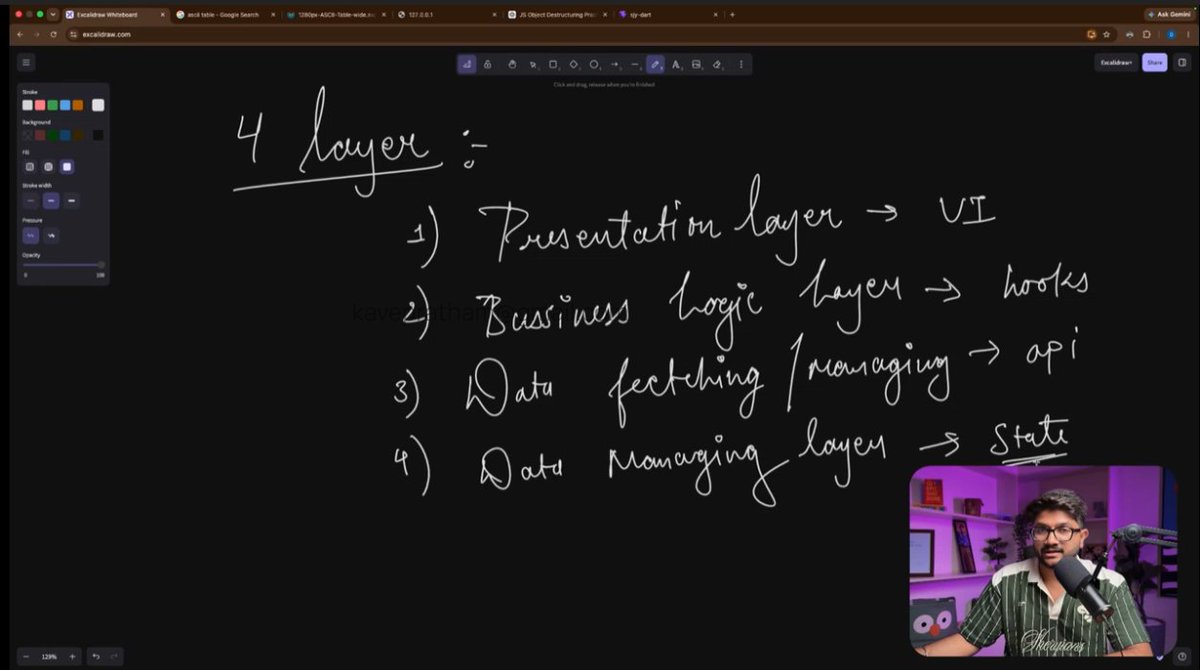 Excalidraw Whiteboard
ascii table - Google Search
1280px-ASCII-Table-wide.sv
127.0.0.1
JS Object Destructuring Pro
sjy-dart
Ask Gemini
excalidraw.com
Excalidraw+
Share
Click and drag, release when you're finished
Stroke
Background
Fill
Stroke width
Pressure
Opacity
0 100
4 layer :-
1) Presentation layer → UI
2) Bussiness Logic Layer → hooks
3) Data fectching / managing → api
4) Data Managing layer → State
Sheryians
129%